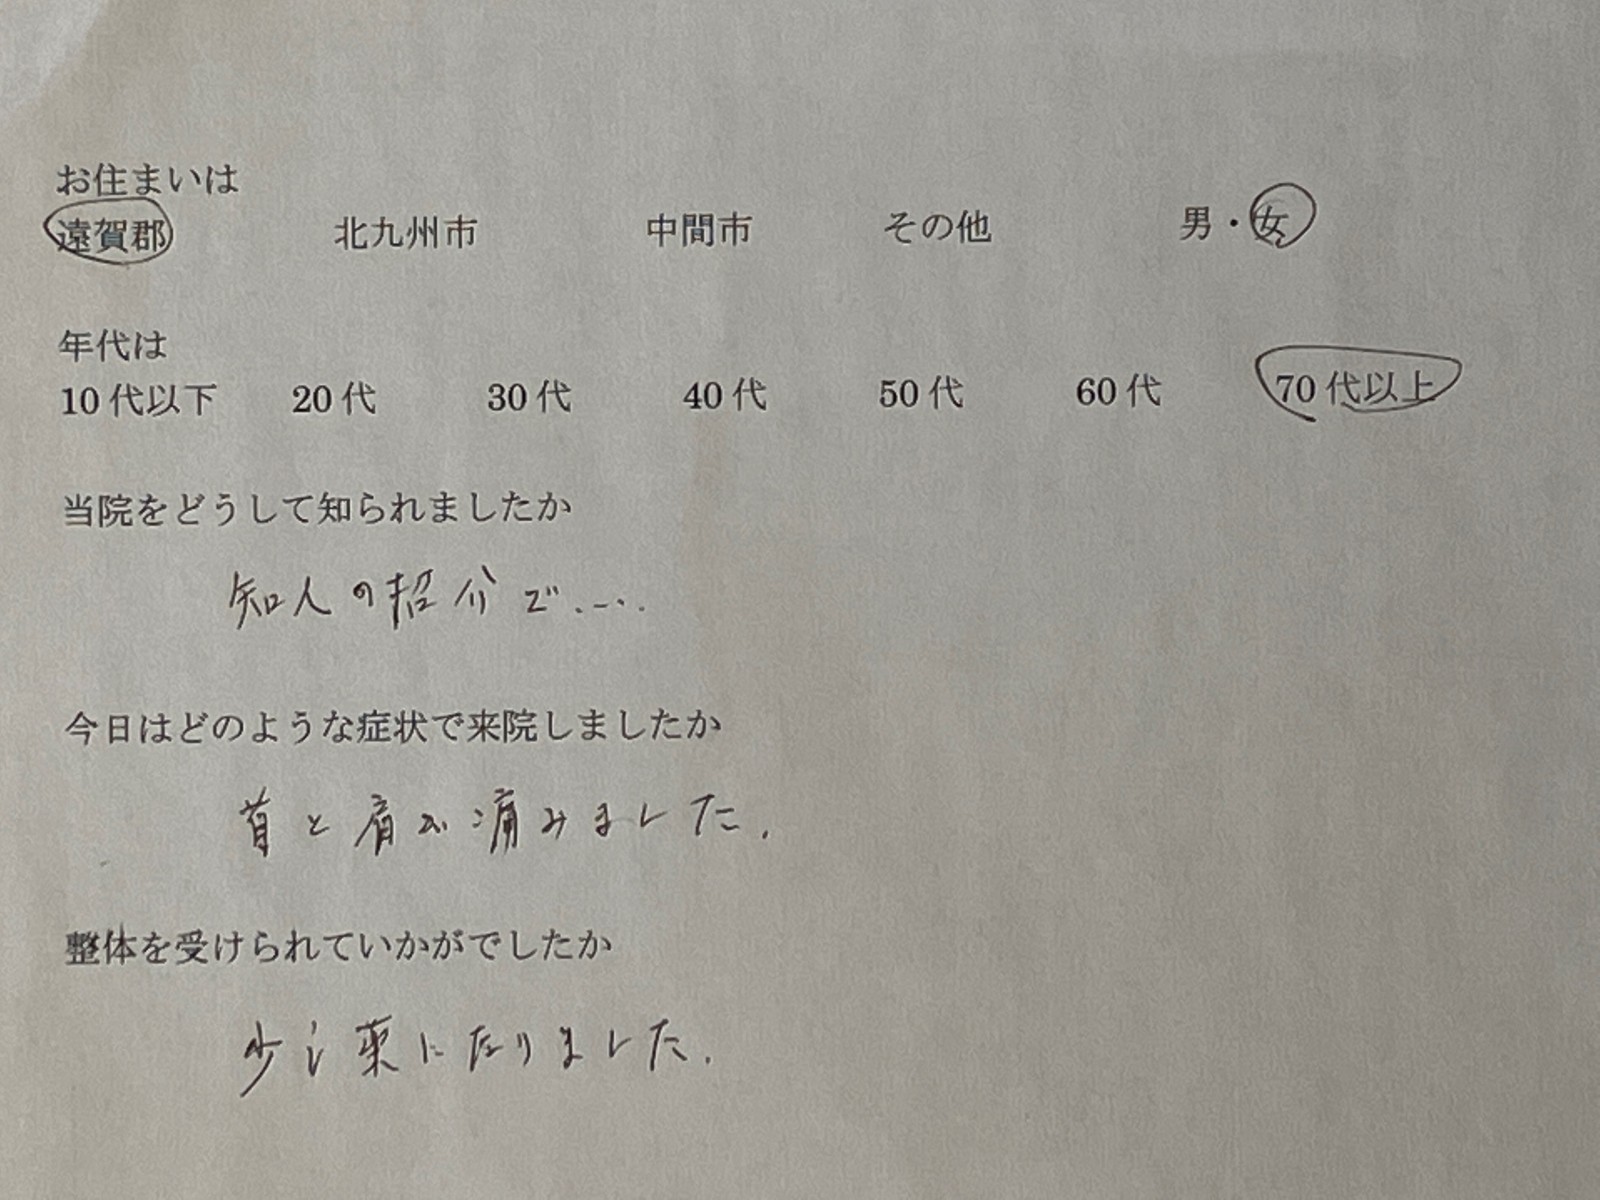 お住まいは
遠賀郡 北九州市 中間市 その他 男・女
年代は
10代以下 20代 30代 40代 50代 60代 70代以上
当院をどうして知られましたか
知人の紹介で.....
今日はどのような症状で来院しましたか
首と肩が痛みました.
整体を受けられていかがでしたか
少し楽になりました.